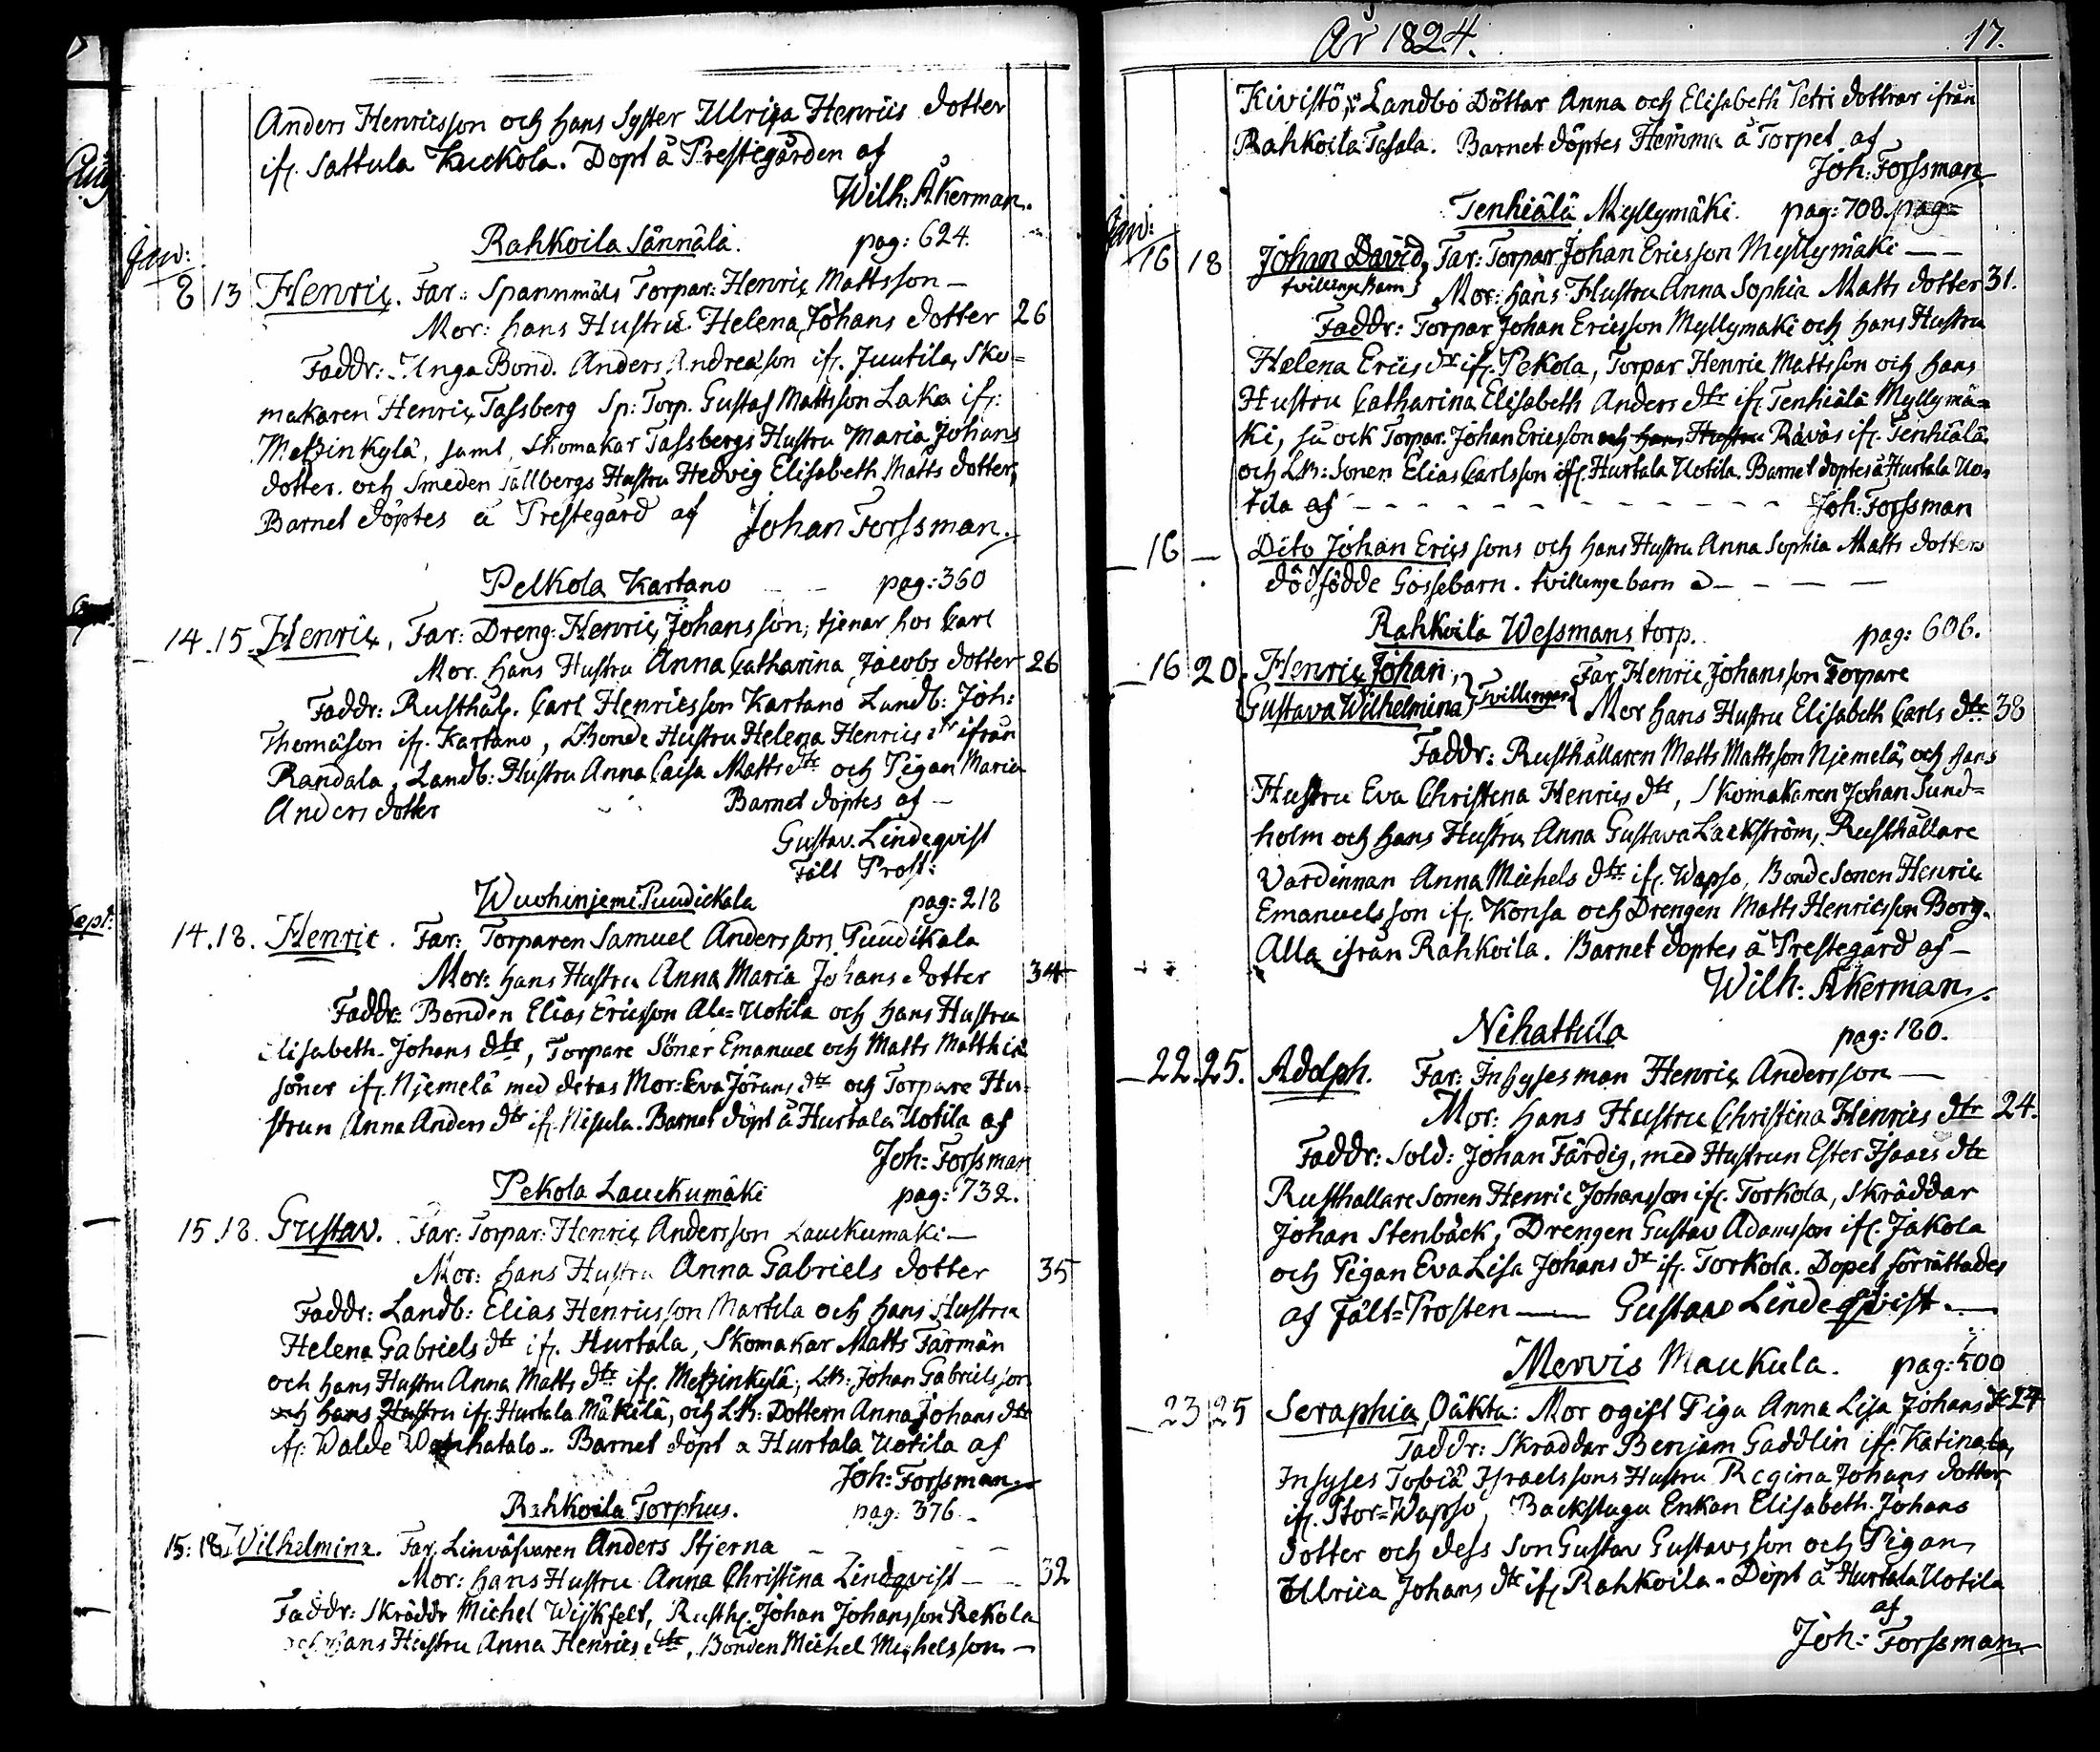 Anders Henricsson och hans Syster Ullrica Henrics dotter
ifr. Sattula Kuckola. Döpt å Prestegården af
Wilh: Åkerman.
Rahkoila Sännälä. pag: 624.
Jan:
8 13 Henric. Far: Spannmåls Torpar: Henric Mattsson —
Mor: hans Hustru Helena Johans dotter 26
Faddr: Unga Bond. Anders Andreasson ifr. Juutila, Sko=
makaren Henric Tassberg Sp: Torp. Gustaf Mattsson Laka ifr:
Metzinkylä, samt, Skomakar Tassbergs Hustru Maria Johans
dotter. och Smeden Tallbergs Hustru Hedvig Elisabeth Matts dotter,
Barnet döptes å Prestegård af Johan Forssman.
Pelkola Kartano pag: 360
14. 15. Henric, Far: Dreng: Henric Johansson, tjenar hos Carl
Mor. hans Hustru Anna Catharina Jacobs dotter 26
Faddr: Rusthålf. Carl Henricsson Kartano Landb: Joh:
Thomasson ifr. Kartano, Lbonde Hustru Helena Henrics dtr ifrån
Randala, Landb: Hustru Anna Caisa Matts dtr och Pigan Maria
Anders dotter Barnet döptes af —
Gustav. Lindeqvist
Fält Prost:
Wuohinjemi Puudickala pag: 218
14. 18. Henric. Far: Torparen Samuel Andersson Puudikala
Mor: hans Hustru Anna Maria Johans dotter 34
Faddr: Bonden Elias Ericsson Ala=Uotila och hans Hustru
Elisabeth Johans dtr, Torpare Söner Emanuel och Matts Matthiæ
söner ifr. Njemelä med deras Mor: Eva Jörans dtr och Torpare Hu-
strun Anna Anders dtr ifr. Nisula. Barnet döpt å Hurtala Uotila af
Joh: Forssman
Pekola Lauckumäki pag: 732.
15. 18. Gustav. Far: Torpar: Henric Andersson Lauckumäki —
Mor: hans Hustru Anna Gabriels dotter 35
Faddr: Landb: Elias Henricsson Martila och hans Hustru
Helena Gabriels dtr ifr. Hurtala, Skomakar Matts Färmän
och hans Hustru Anna Matts dtr ifr. Metzinkylä, LB: Johan Gabrielsson
och hans Hustru ifr. Hurtala Mäkilä, och LB: Dottern Anna Johans dtr
ifr. Walde Wanhatalo. Barnet döpt å Hurtala Uotila af
Joh: Forssman.
Rahkoila Torphus. pag: 376.
15: 18. Wilhelmina. Far. Linväfvaren Anders Stjerna
Mor: hans Hustru Anna Christina Lindqvist — 32
Faddr: Skräddr Michel Wijkfelt, Rusth. Johan Johansson Rekola
och hans Hustru Anna Henrics dtr, Bonden Michel Michelsson —
År 1824. 17.
Kivistö, Landbo Döttar Anna och Elisabeth Petri dottrar ifrån
Rahkoila Tasala. Barnet döptes Hemma å Torpet af
Joh: Forssman
Tenhiälä Myllymäki. pag: 708. pag:
Jan:
16 18 Johan David, Far: Torpar Johan Ericsson Myllymäki —
tvillinge Barn Mor: hans Hustru Anna Sophia Matts dotter 31.
Faddr: Torpar Johan Ericsson Myllymäki och hans Hustru
Helena Erics dtr ifr. Pekola, Torpar Henric Mattsson och hans
Hustru Catharina Elisabeth Anders dtr ifr Tenhiälä Myllymä=
ki, så ock Torpar. Johan Ericsson och hans Hustru Rävås ifr. Tenhiälä
och LB: Sonen Elias Carlsson ifr. Hurtala Uotila. Barnet döptes å Hurtala Uo-
tila af Joh: Forssman
16 — Dito Johan Ericssons och hans Hustru Anna Sophia Matts dotters
dödfödde Gossebarn. tvillinge barn
Rahkoila Wessmans torp. pag: 606.
16 20. Henric Johan, Far Henric Johansson Torpare
Gustava Wilhelmina Tvillingar Mor hans Hustru Elisabeth Carls dtr 38
Faddr: Rusthållaren Matts Mattsson Njemelä, och hans
Hustru Eva Christena Henrics dtr, Skomakaren Johan Sund=
holm och hans Hustru Anna Gustava Lackström, Rusthållare
Värdinnan Anna Michels dtr ifr. Wapso, Bonde Sonen Henric
Emanuelsson ifr. Konsa och Drengen Matts Henricsson Borg.
Alla ifrån Rahkoila. Barnet döptes å Prestegård af —
Wilh: Åkerman.
Nihattula pag: 180.
22. 25. Adolph. Far: Inhyses man Henric Andersson —
Mor: hans Hustru Christina Henrics dtr 24.
Faddr: Sold: Johan Färdig, med Hustrun Ester Isaacs dtr
Rusthållare Sonen Henric Johansson ifr. Torkola, Skräddar
Johan Stenbäck, Drengen Gustav Adamsson ifr. Jakola
och Pigan Eva Lisa Johans dr ifr. Torkola. Dopet förrättades
af Fält=Prosten — Gustav Lindeqvist. —
Mervis Maukula. pag: 500
23 25 Seraphia, Oäkta: Mor ogift Piga Anna Lisa Johans dr 24
Faddr: Skräddar Benjam Gaddlin ifr. Katinala,
Inhyses Tobiä Israelssons Hustru Regina Johans dotter,
ifr. Stor=Wapso, Backstugu Enkan Elisabeth Johans
dotter och dess Son Gustav Gustavsson och Pigan
Ullrica Johans dtr ifr Rahkoila. Döpt å Hurtala Uotila
af
Joh: Forssman